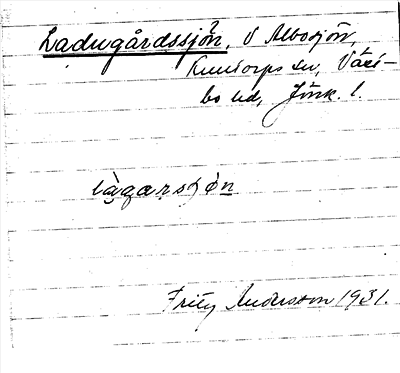 Ladugårdssjön, V Albosjön,
Kulltorps sn, Väst-
bo hd, Jönk. l.
làgarsjø̀n
Fritz Andersson 1931.